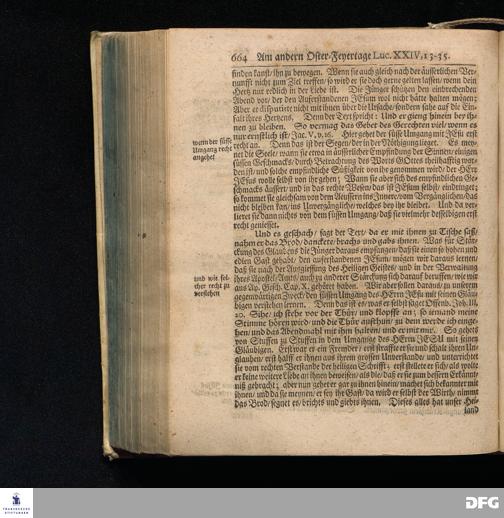 664 Am andern Oster-Feyertage Luc. XXIV, 13-35.
finden kanst/ ihn zu bewegen. Wenn sie auch gleich nach der äusserlichen Ver-
nunfft nicht zum Ziel treffen/ so wird er sie doch gerne gelten lassen/ wenn dein
Hertz nur redlich in der Liebe ist. Die Jünger schützen den einbrechenden
Abend vor/ der den Auferstandenen JEsum wol nicht hätte halten mögen;
Aber er disputirte nicht mit ihnen über die Ursache/ sondern sahe auf die Ein-
falt ihres Hertzens. Denn der Text spricht: Und er gieng hinein bey ih-
nen zu bleiben. So vermag das Gebet des Gerechten viel/ wenn es
nur ernstlich ist/ Jac. V, v. 16. Hier gehet der süsse Umgang mit JEsu erst
recht an. Denn das ist der Segen/ der in der Nöthigung lieget. Es mey-
net die Seele/ wann sie etwa in äusserlicher Empfindung der Sinnen/ einigen
süssen Geschmacks/ durch Betrachtung des Worts GOttes theilhafftig wor-
den ist/ und solche empfindliche Süßigkeit von ihr genommen wird/ der HErr
JEsus wolle selbst von ihr gehen; Wann sie aber sich des empfindlichen Ge-
schmacks äussert/ und in das rechte Wesen/ das ist JEsum selbst/ eindringet;
so kommet sie gleichsam von dem Aeussern ins Innere/ vom Vergänglichen/ das
nicht bleiben kan/ ins Unvergängliche/ welches bey ihr bleibet. Und da ver-
lieret sie dann nichts von dem süssen Umgang/ daß sie vielmehr desselbigen erst
recht geniesset.
wann der süsse
Umgang recht
angehet
Und es geschach/ sagt der Text/ da er mit ihnen zu Tische saß/
nahm er das Brod/ danckete/ brachs und gabs ihnen. Was für Stär-
ckung des Glaubens die Jünger daraus empfangen/ daß sie einen so hohen und
edlen Gast gehabt/ den auferstandenen JEsum/ mögen wir daraus lernen/
daß sie nach der Ausgiessung des Heiligen Geistes/ und in der Verwaltung
ihres Apostel-Amts/ auch zu anderer Stärckung sich darauf beruffen/ wie wir
aus Ap. Gesch. Cap. X. gehöret haben. Wir aber sollen daraus/ zu unserm
gegenwärtigen Zweck/ den süssen Umgang des HErrn JEsu mit seinen Gläu-
bigen verstehen lernen. Denn das ist es/ was er selbst saget Offenb. Joh. III,
20. Sihe/ ich stehe vor der Thür/ und klopffe an; so jemand meine
Stimme hören wird/ und die Thür aufthun/ zu dem werde ich einge-
hen/ und das Abendmahl mit ihm halten/ und er mit mir. So gehets
von Stuffen zu Stuffen in dem Umgange des HErrn JESU mit seinen
Gläubigen. Erst war er ein Fremder/ erst straffte er sie und schalt ihren Un-
glauben/ erst halff er ihnen aus ihrem grossen Unverstande/ und unterrichtet
sie vom rechten Verstande der heiligen Schrifft; erst stellete er sich/ als wolte
er keine weitere Liebe an ihnen beweisen/ als die/ daß er sie zum bessern Erkännt-
niß gebracht; aber nun gehet er gar zu ihnen hinein/ machet sich bekannter mit
ihnen/ und da sie meynen/ er sey ihr Gast/ da wird er selbst der Wirth/ nimmt
das Brod/ segnet es/ brichts und giebts ihnen. Dieses alles hat unser Hei-
land
und wie sol-
cher recht zu
verstehen
FRANCKESCHE
STIFTUNGEN
DFG